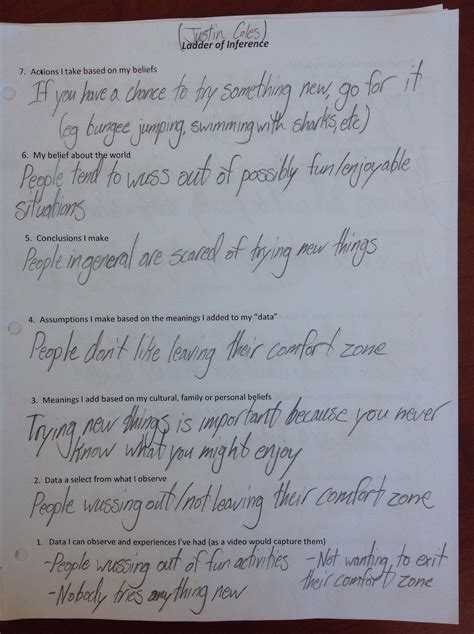 (Justin Coles)
Ladder of Inference
7. Actions I take based on my beliefs
If you have a chance to try something new, go for it
(eg bungee jumping, swimming with sharks, etc)
6. My belief about the world
People tend to wuss out of possibly fun/enjoyable
situations
5. Conclusions I make
People in general are scared of trying new things
4. Assumptions I make based on the meanings I added to my "data"
People don't like leaving their comfort zone
3. Meanings I add based on my cultural, family or personal beliefs
Trying new things is important because you never
know what you might enjoy
2. Data a select from what I observe
People wussing out/not leaving their comfort zone
1. Data I can observe and experiences I've had (as a video would capture them)
-People wussing out of fun activities -Not wanting to exit
their comfort zone
-Nobody tries anything new